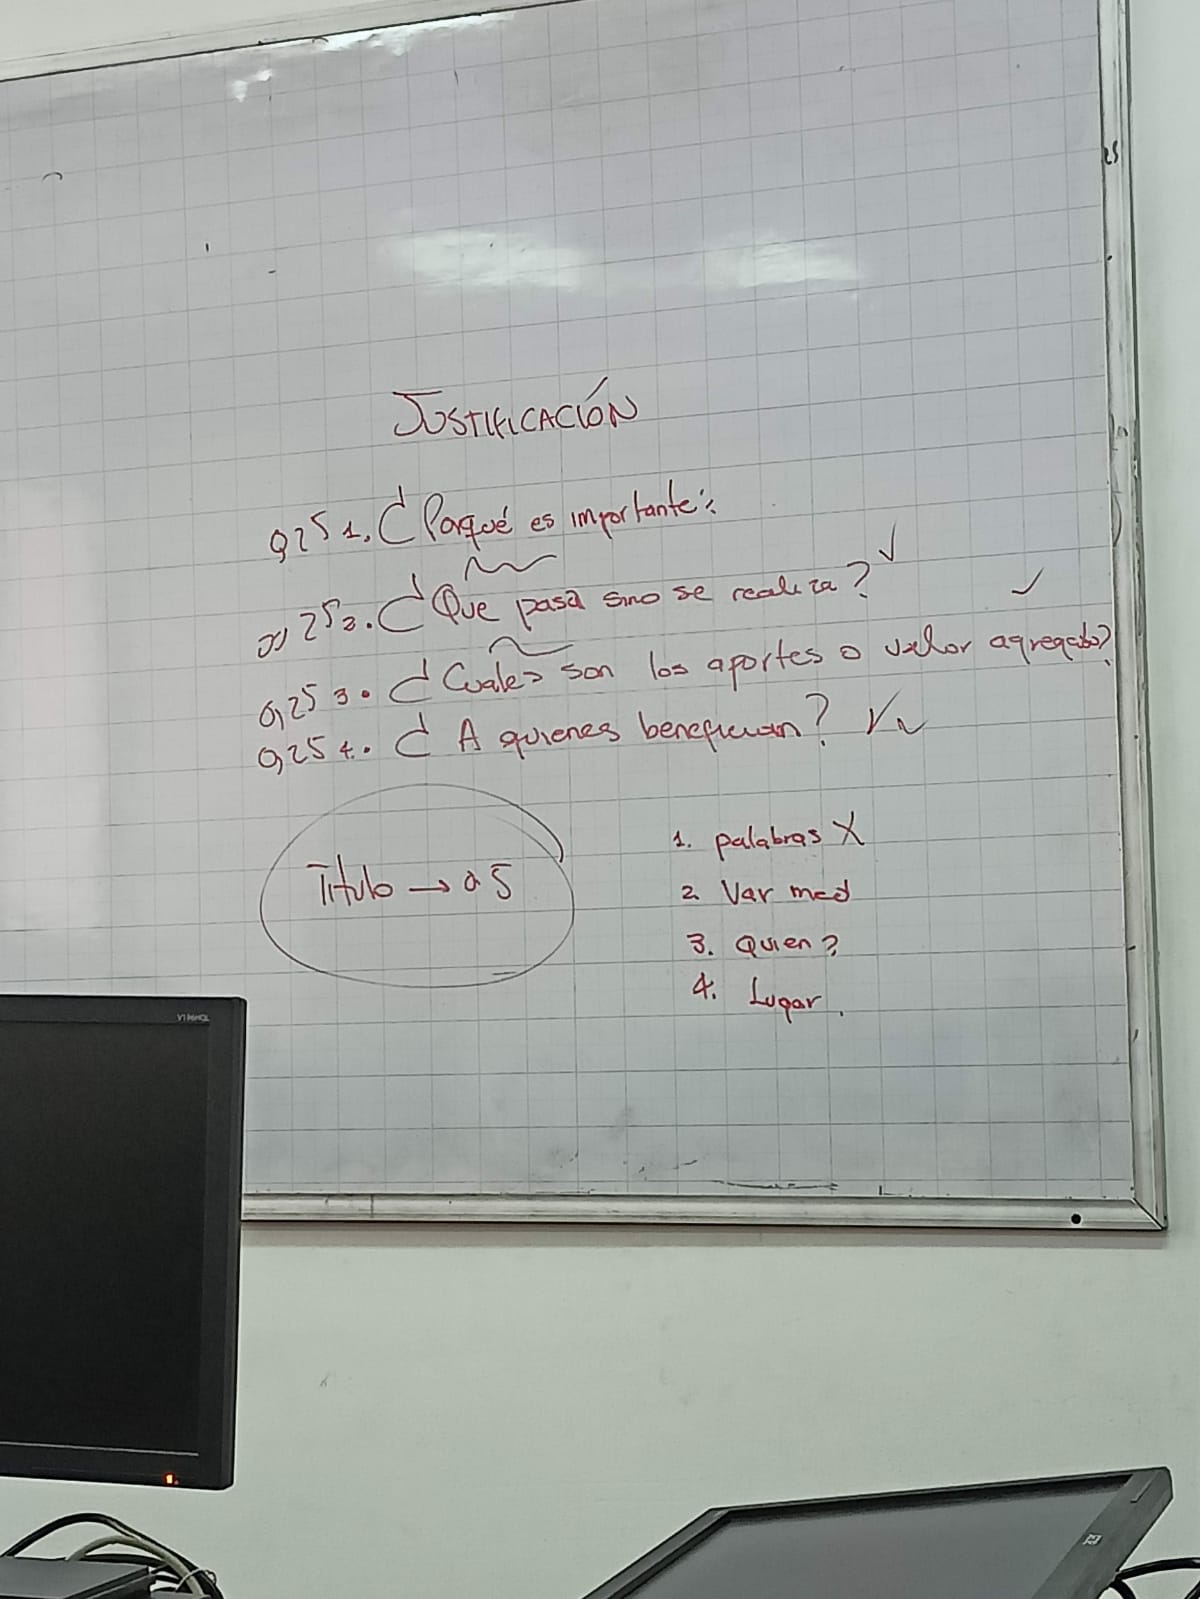 JUSTIFICACIÓN
0,25 1. ¿Porqué es importante?
0,25 2. ¿Que pasa sino se realiza? ✓
0,25 3. ¿Cuales son los aportes o valor agregado? ✓
0,25 4. ¿A quienes benefician? ✓
Titulo → 0.5
1. palabras X
2. Var med
3. Quien?
4. Lugar.